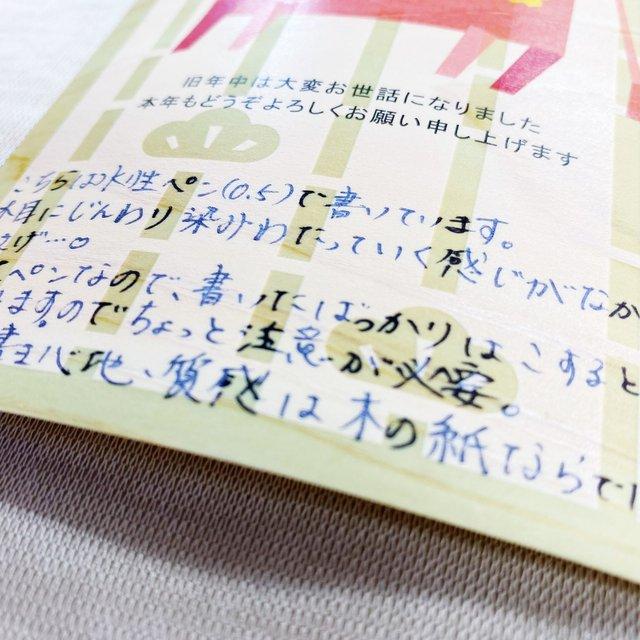 旧年中は大変お世話になりました
本年もどうぞよろしくお願い申し上げます
こちらは水性ペン(0.5)で書いています。
木目にじんわり染みわたっていく感じがなか
げ…♡
ペンなので、書いたばっかりはこすると
ますのでちょっと注意が必要。
書き心地、質感は木の紙ならで